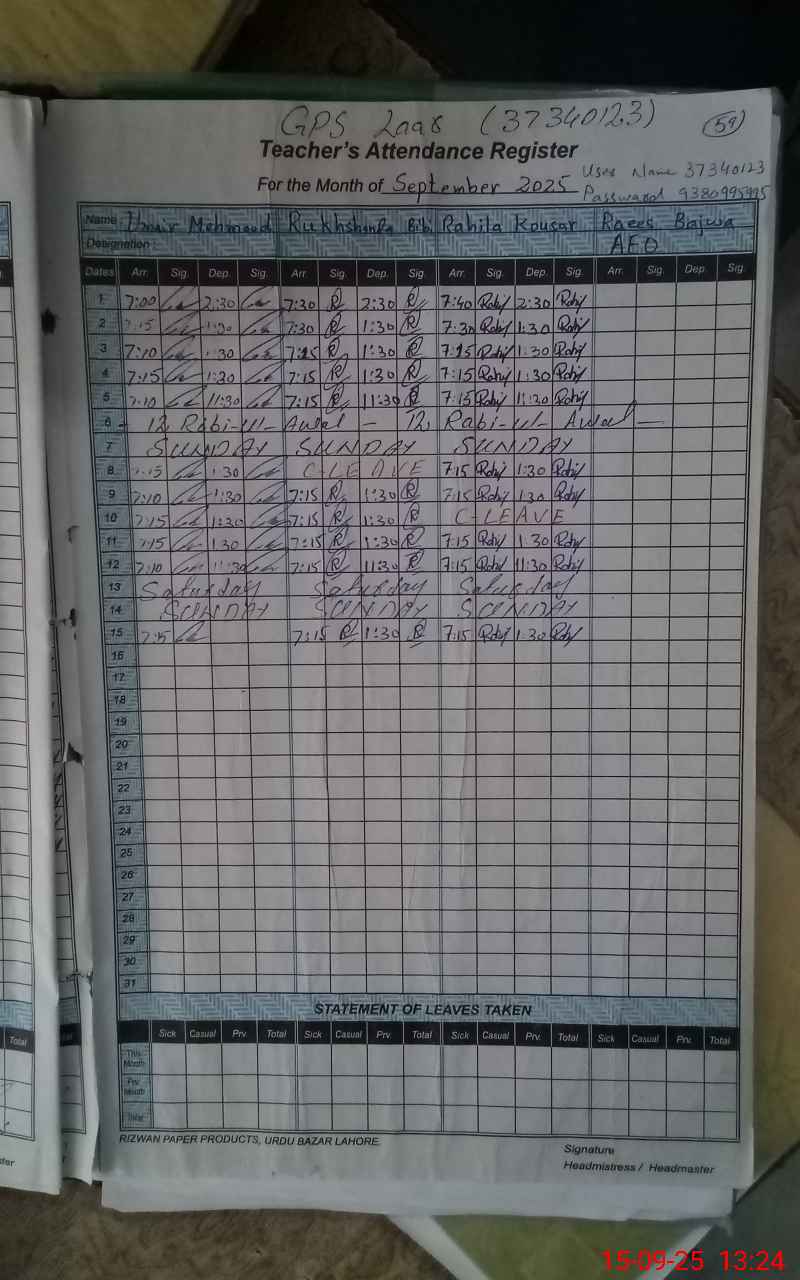 GPS Laar (37340123) 59
Teacher's Attendance Register
User Name 37340123
For the Month of September 2025
Password 9380995995
Name : Umair Mehmood Rukhshanda Bibi Rahila Kousar Raees Bajwa
Designation : AEO
Dates Arr. Sig. Dep. Sig. Arr. Sig. Dep. Sig. Arr. Sig. Dep. Sig. Arr. Sig. Dep. Sig.
1 7:00 2:30 7:30 R 2:30 R 7:40 Rahij 2:30 Rahij
2 7:15 1:30 7:30 R 1:30 R 7:30 Rahij 1:30 Rahij
3 7:10 1:30 7:15 R 1:30 R 7:15 Rahij 1:30 Rahij
4 7:15 1:30 7:15 R 1:30 R 7:15 Rahij 1:30 Rahij
5 7:10 11:30 7:15 R 11:30 R 7:15 Rahij 11:30 Rahij
6 - 12 Rabi-ul-Awal - 12, Rabi-ul-Awal -
7 SUNDAY SUNDAY SUNDAY
8 7:15 1:30 C-LEAVE 7:15 Rahij 1:30 Rahij
9 7:10 1:30 7:15 R 1:30 R 7:15 Rahij 1:30 Rahij
10 7:15 1:30 7:15 R 1:30 R C-LEAVE
11 7:15 1:30 7:15 R 1:30 R 7:15 Rahij 1:30 Rahij
12 7:10 11:30 7:15 R 11:30 R 7:15 Rahij 11:30 Rahij
13 Saturday Saturday Saturday
14 SUNDAY SUNDAY SUNDAY
15 7:15 7:15 R 1:30 R 7:15 Rahij 1:30 Rahij
16
17
18
19
20
21
22
23
24
25
26
27
28
29
30
31
STATEMENT OF LEAVES TAKEN
Total Sick Casual Prv. Total Sick Casual Prv. Total Sick Casual Prv. Total Sick Casual Prv. Total
This Month
Prv. Month
Total
RIZWAN PAPER PRODUCTS, URDU BAZAR LAHORE.
Signature
Headmistress / Headmaster
15-09-25 13:24